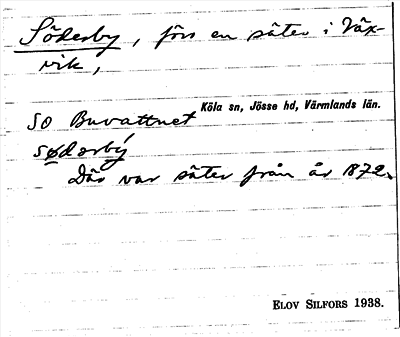 Söderby, förs en säter i Växvik,
SO Buvattnet
Köla sn, Jösse hd, Värmlands län.
sødərby
Där var säter från år 1872.
ELOV SILFORS 1938.